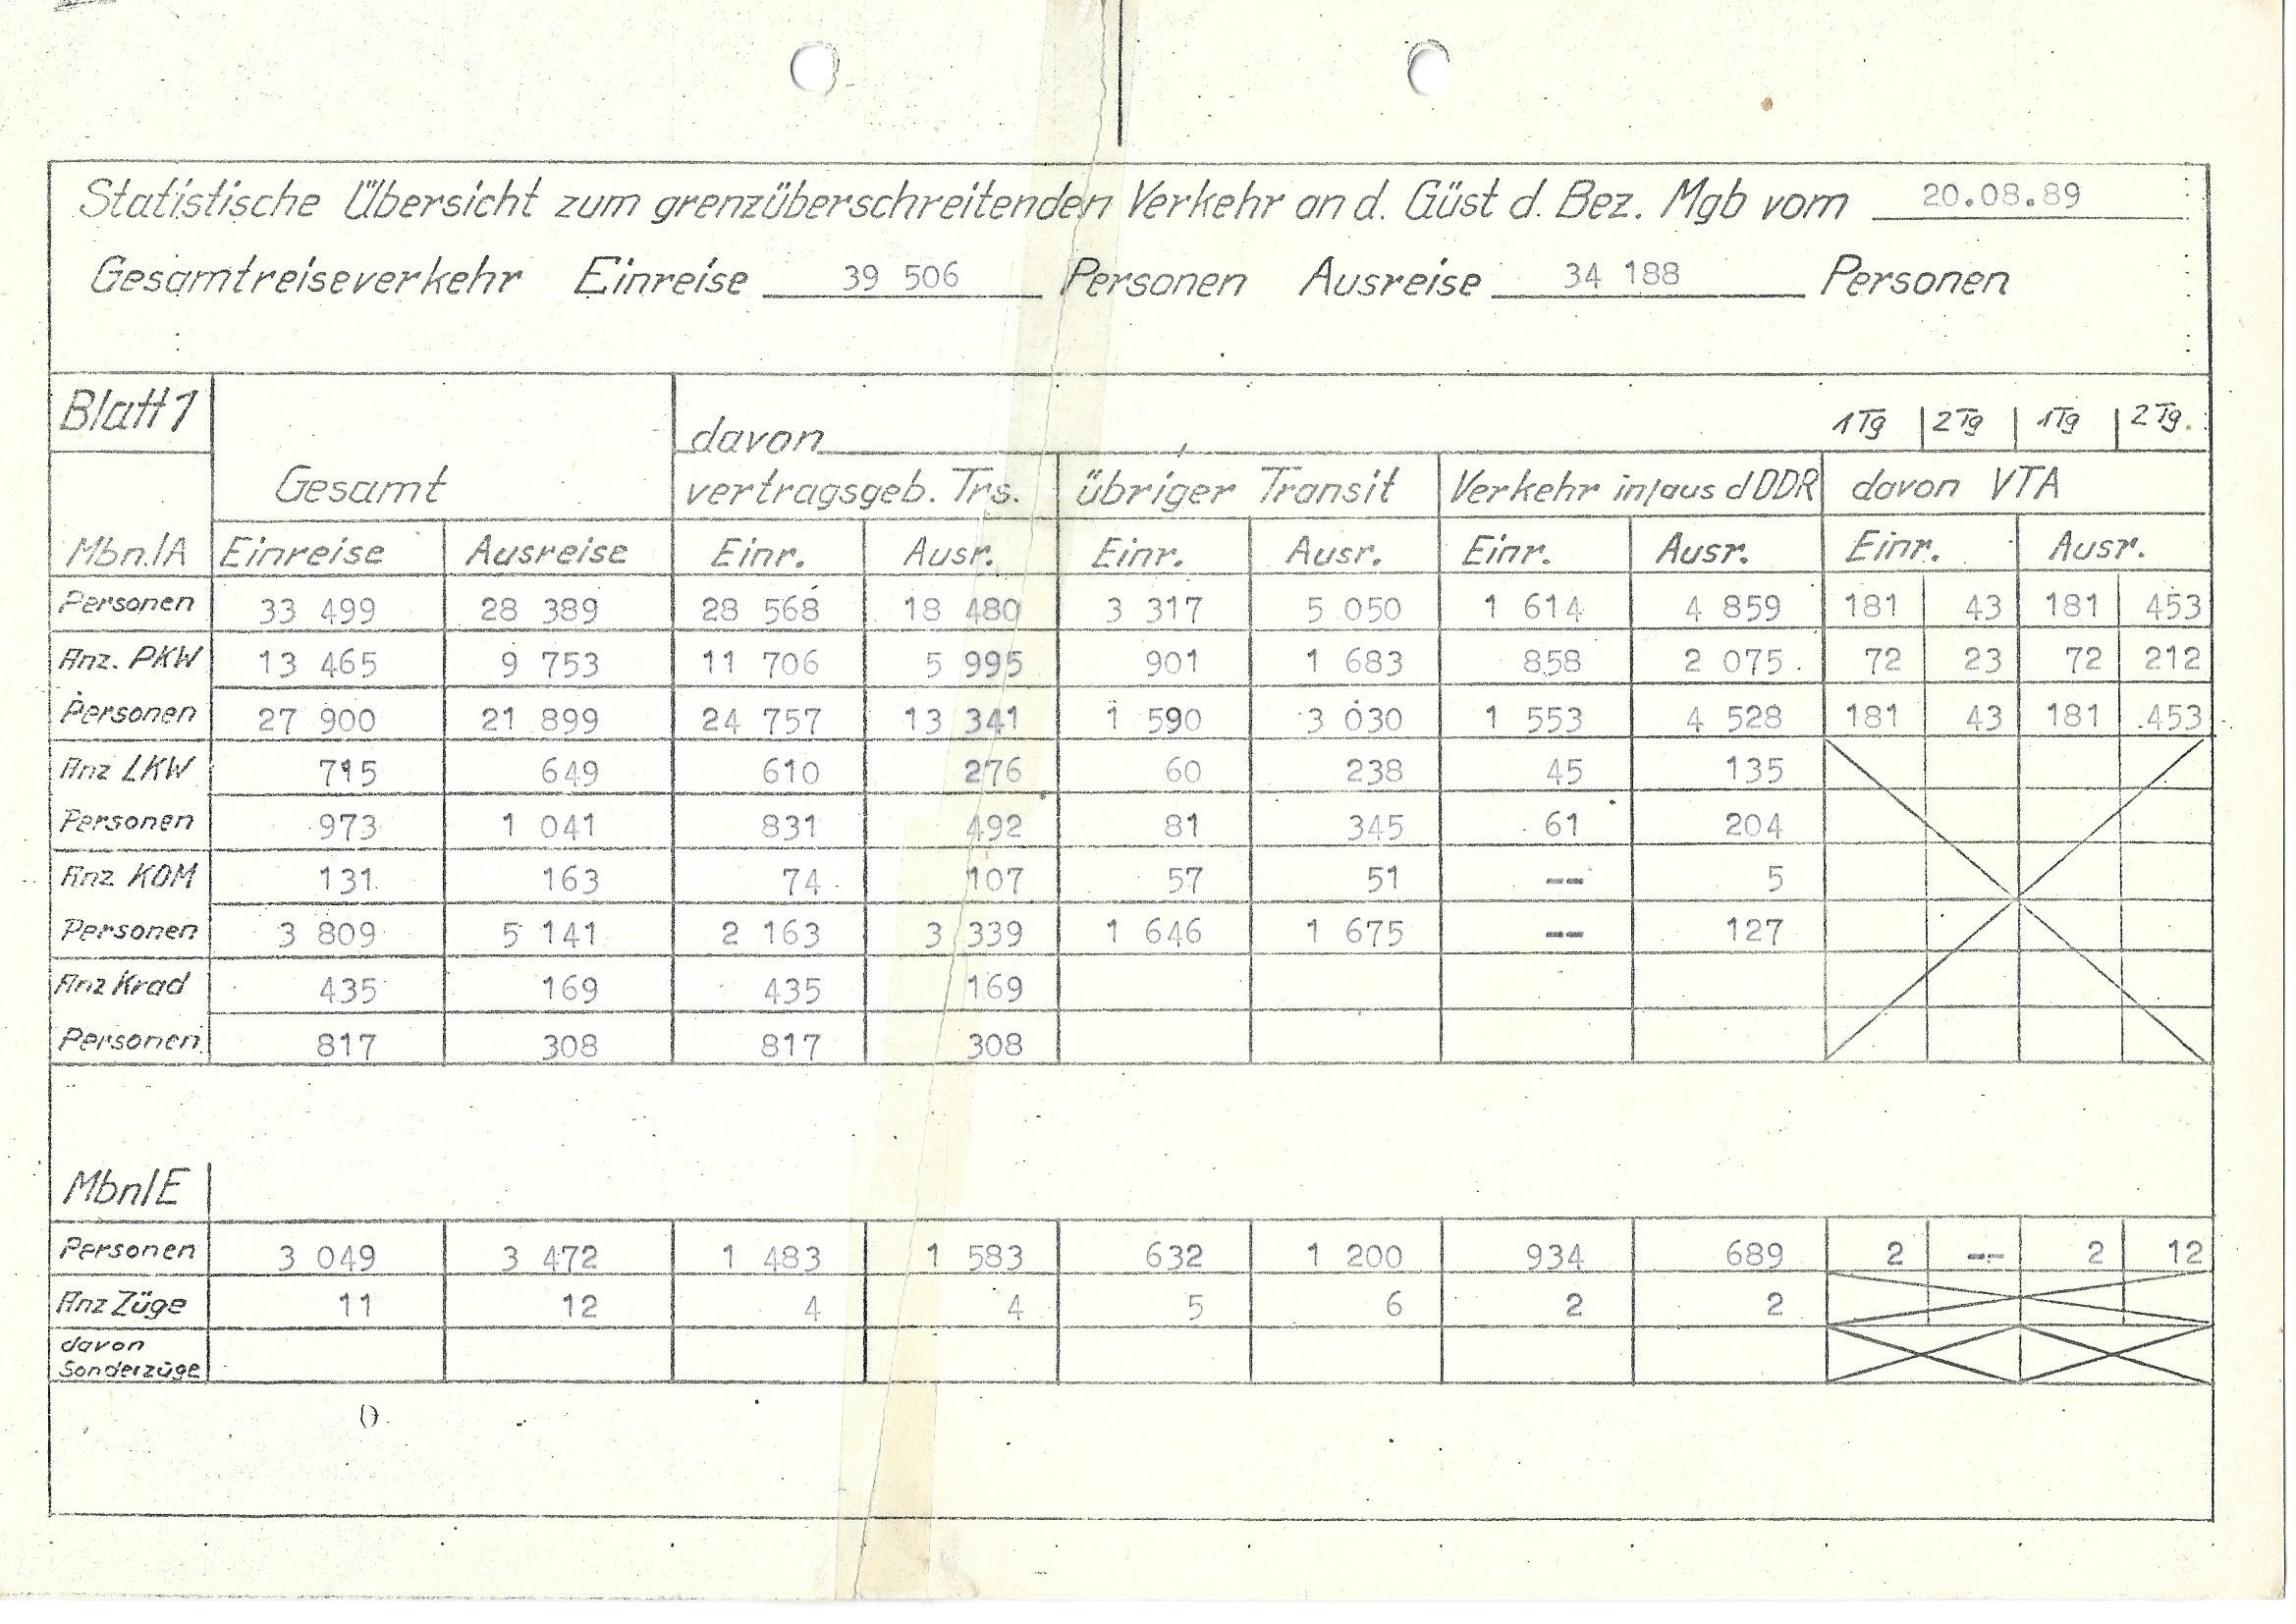 Statistische Übersicht zum grenzüberschreitenden Verkehr an d. Güst d. Bez. Mgb vom 20.08.89
Gesamtreiseverkehr Einreise 39 506 Personen Ausreise 34 188 Personen
Blatt 1 davon 1Tg 2Tg 1Tg 2Tg.
Gesamt vertragsgeb. Trs. übriger Transit Verkehr in/aus d DDR davon VTA
Mbn./A Einreise Ausreise Einr. Ausr. Einr. Ausr. Einr. Ausr. Einr. Ausr.
Personen 33 499 28 389 28 568 18 480 3 317 5 050 1 614 4 859 181 43 181 453
Anz. PKW 13 465 9 753 11 706 5 995 901 1 683 858 2 075 72 23 72 212
Personen 27 900 21 899 24 757 13 341 1 590 3 030 1 553 4 528 181 43 181 453
Anz LKW 715 649 610 276 60 238 45 135
Personen 973 1 041 831 492 81 345 61 204
Anz KOM 131 163 74 107 57 51 -- 5
Personen 3 809 5 141 2 163 3 339 1 646 1 675 -- 127
Anz Krad 435 169 435 169
Personen 817 308 817 308
Mbn/E
Personen 3 049 3 472 1 483 1 583 632 1 200 934 689 2 -- 2 12
Anz Züge 11 12 4 4 5 6 2 2
davon
Sonderzüge